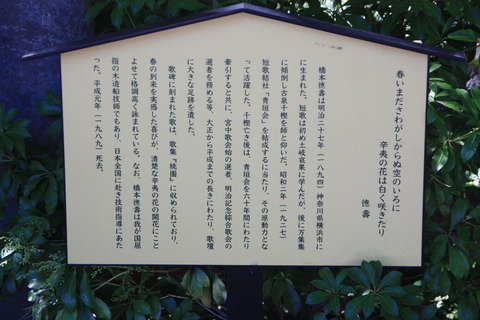 春いまださわがしからぬ空のいろに
辛夷の花は白く咲きたり
徳壽
橋本徳壽は明治二十七年(一八九四)神奈川県横浜市に
に生まれた。短歌は初め土岐哀果に学んだが、後に万葉集
に傾倒し古泉千樫を師と仰いだ。昭和二年(一九二七)
短歌結社「青垣会」を結成するに当たり、その原動力とな
って活躍した。千樫亡き後は、青垣会を六十年間にわたり
牽引すると共に、宮中歌会始の選者、明治記念綜合歌会の
選者を務める等、大正から平成までの長きにわたり、歌壇
に大きな足跡を遺した。
歌碑に刻まれた歌は、歌集『桃園』に収められており、
春の到来を実感した喜びが、清楚な辛夷の花の開花にこと
よせて格調高く詠まれている。なお、橋本徳壽は我が国屈
指の木造船技師でもあり、日本全国に赴き技術指導にあた
った。平成元年(一九八九)死去。